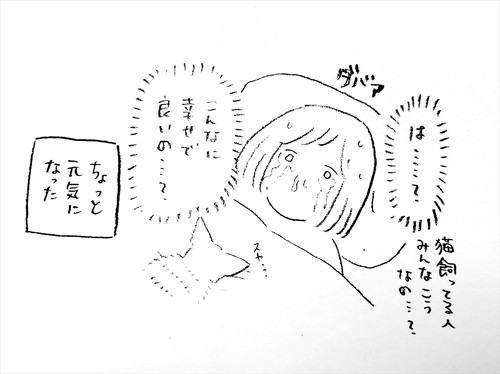 ダバァ
は……？
猫飼ってる人
みんなこう
なの…？
こんなに
幸せで
良いの…？
スヤ…
ちょっと
元気に
なった